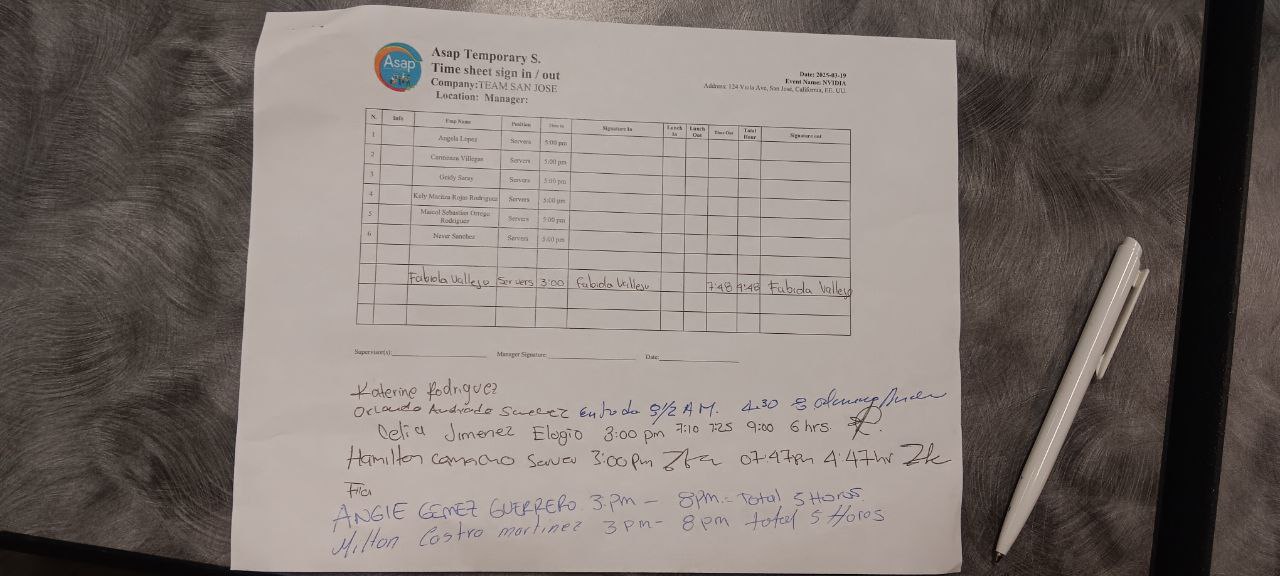 Asap
Asap Temporary S.
Time sheet sign in / out
Company:TEAM SAN JOSE
Location: Manager:
Date: 2025-03-19
Event Name: NVIDIA
Address: 124 Viola Ave, San José, California, EE. UU.
N. Info Emp Name Position Time In Signature In Lunch In Lunch Out Time Out Total Hour Signature out
1 Angela Lopez Servers 5:00 pm
2 Carmenza Villegas Servers 5:00 pm
3 Geidy Saray Servers 5:00 pm
4 Kely Maritza Rojas Rodriguez Servers 5:00 pm
5 Marcol Sebastian Orrego Rodriguez Servers 5:00 pm
6 Never Sanchez Servers 5:00 pm
Fabiola Vallejo Servers 3:00 Fabiola Vallejo 7:48 4:48 Fabiola Vallejo
Supervisor(s): Manager Signature: Date:
Katerine Rodriguez
Orlando Andrade Sanchez Entrada 8 1/2 AM. 4:30
Celia Jimenez Elogio 3:00 pm 7:10 7:25 9:00 6 hrs.
Hamilton camacho Server 3:00 pm 07:47pm 4:47hr
ANGIE GEMEZ GUERRERO. 3.pm - 8pm.- Total 5 Horas.
Milton Castro martinez 3 pm - 8 pm total 5 Horas